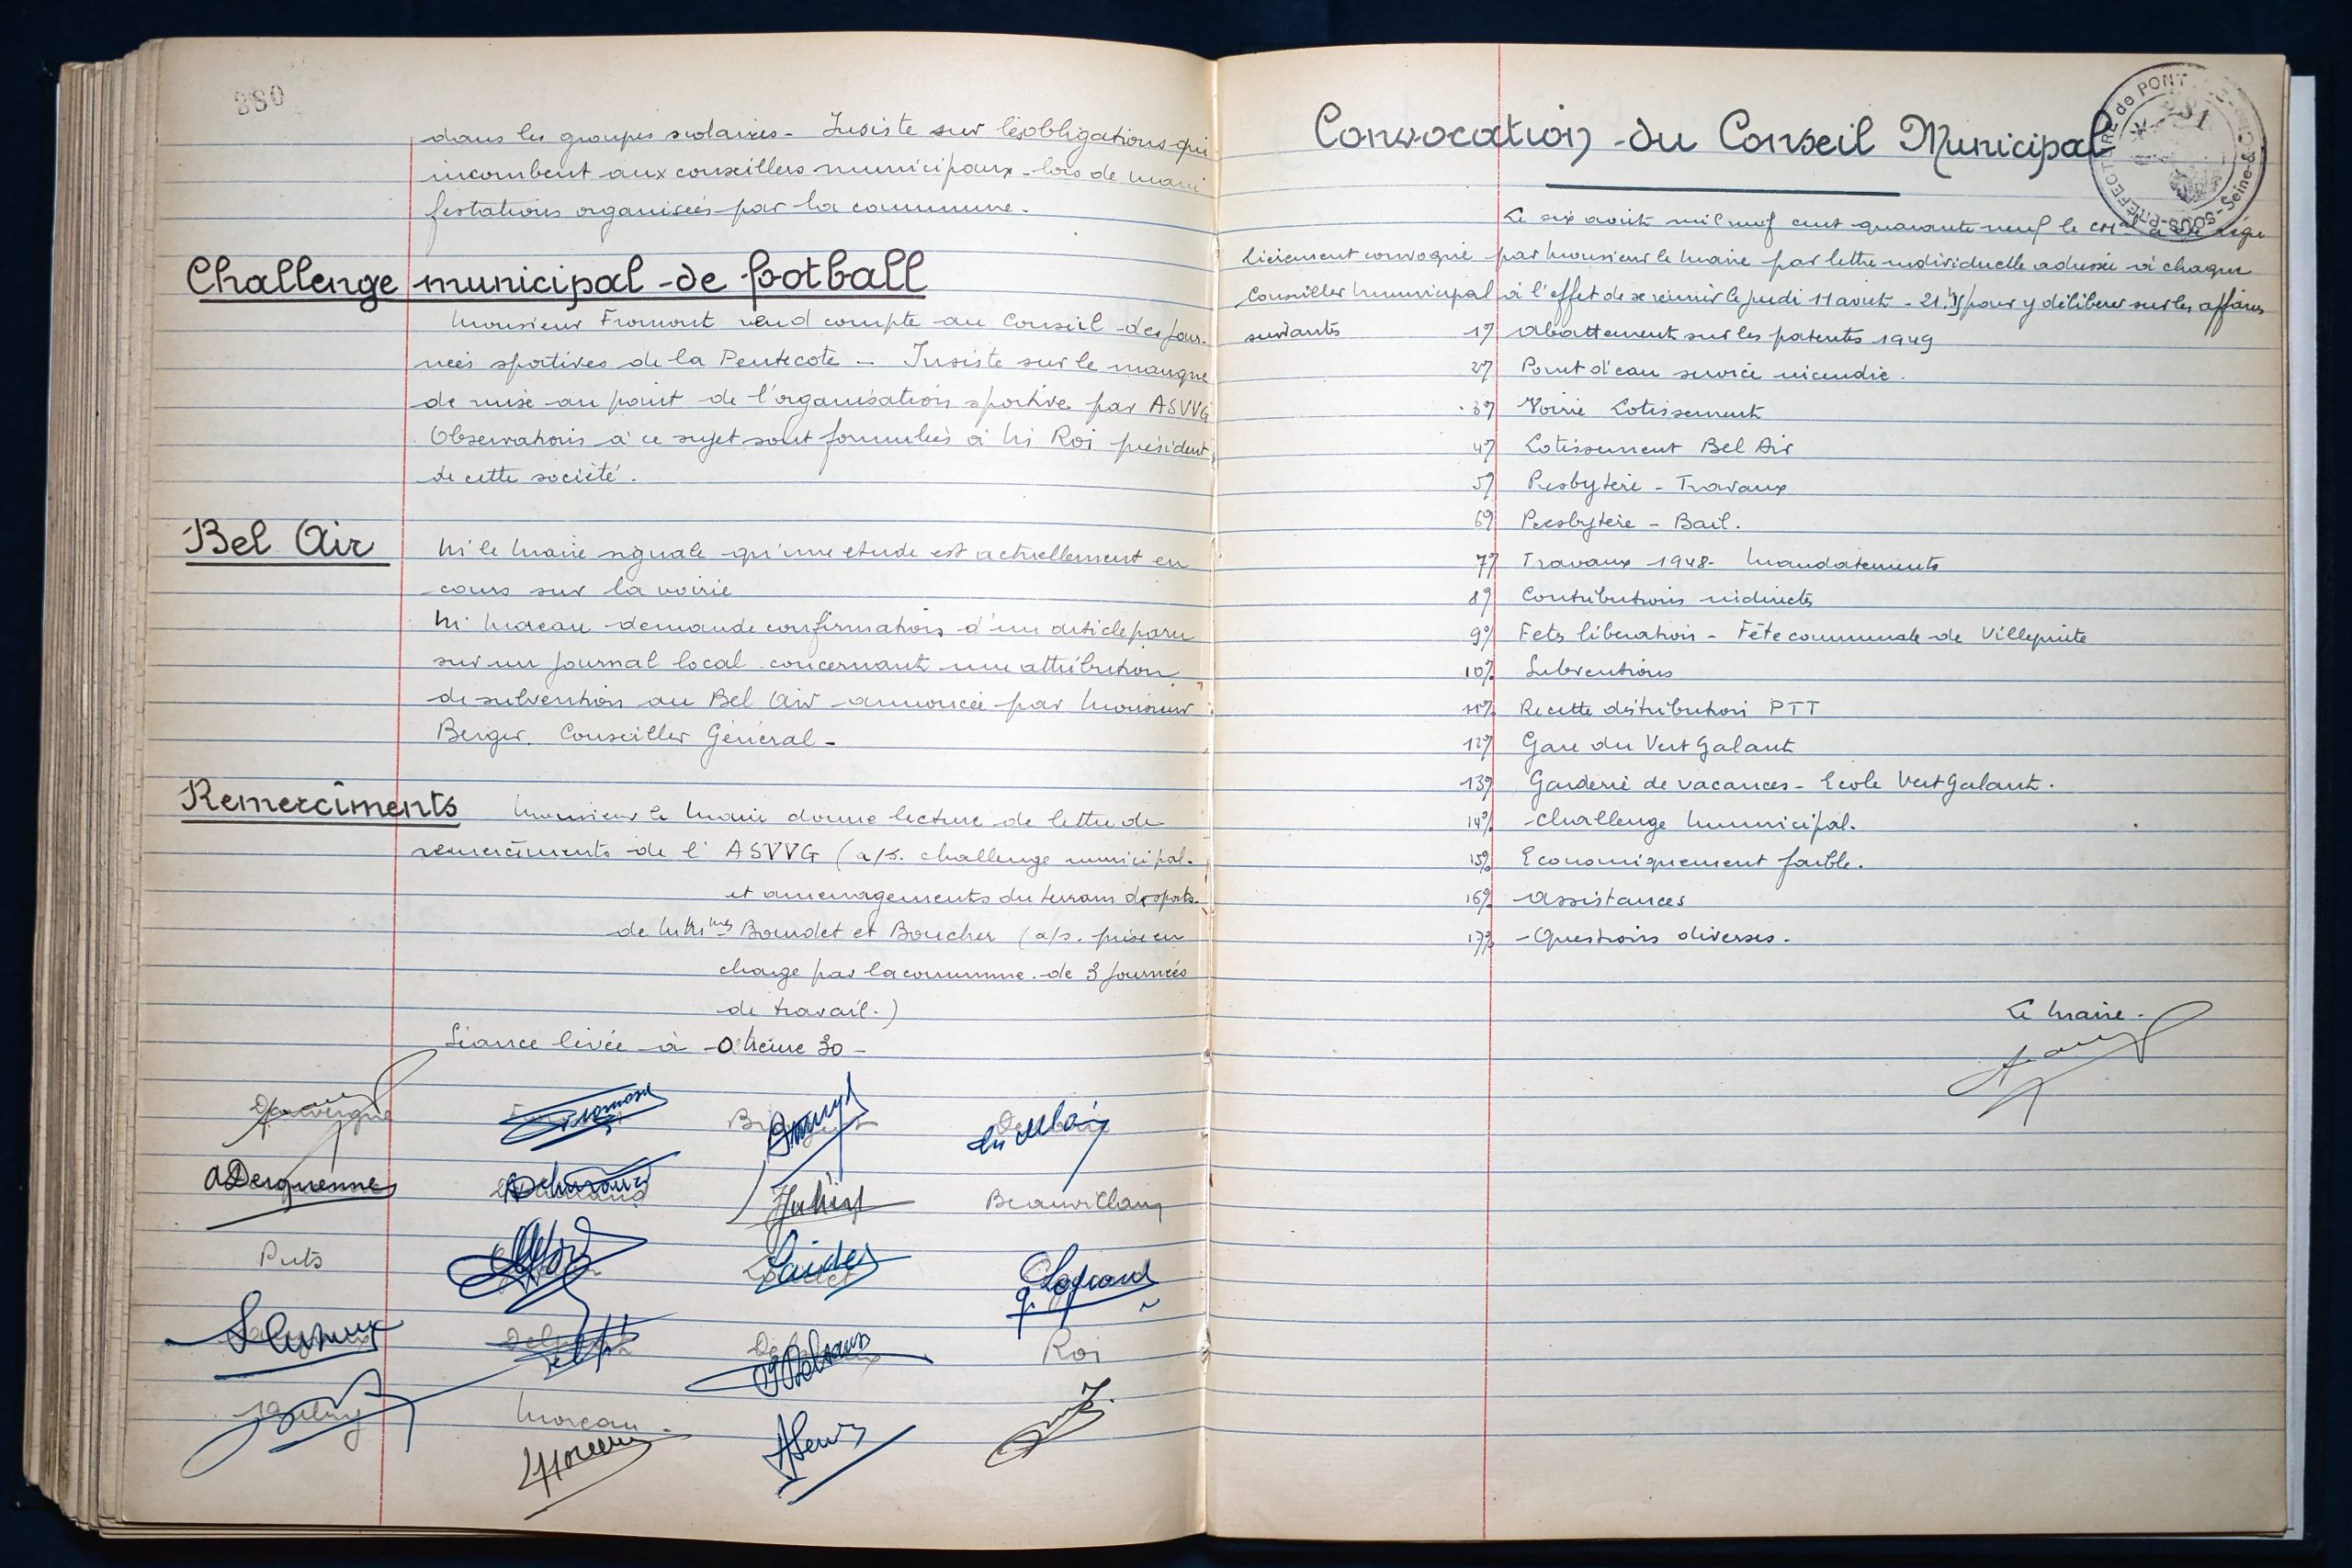 380
dans les groupes scolaires - Insiste sur les obligations qui
incombent aux conseillers municipaux - lors de mani
festations organisées par la commune.
Challenge municipal de football
Monsieur Fromont rend compte au Conseil des jour-
nées sportives de la Pentecote - Insiste sur le manque
de mise au point de l'organisation sportive par ASVVG
Observations à ce sujet sont formulées à Mr Roi président
de cette société.
Bel Air
Mr le Maire signale qu'une etude est actuellement en
cours sur la voirie
Mr Moreau demande confirmation d'un article paru
sur un journal local concernant une attribution
de subvention au Bel Air annoncée par Monsieur
Berger. Conseiller Général -
Remerciments
Monsieur le Maire donne lecture de lettre de
remerciments de l'ASVVG (a/s. challenge municipal.
et amenagements du terrain de sports.
de MMmes Bourdet et Boucher (a/s. prise en
charge par la commune. de 3 journées
de travail.)
Séance levée à 0 heure 30 -
Dauvergne
Fromont
ADerquenne
Beauvillain
Puts
Legrand
Roi
Moreau
Convocation du Conseil Municipal
SOUS-PREFECTURE de PONTOISE Seine-&-Oise
Le six août mil neuf cent quarante neuf le CMal a été régu
lièrement convoqué par Monsieur le Maire par lettre individuelle adressée à chaque
Conseiller Municipal à l'effet de se réunir le jeudi 11 août - 21h pour y délibérer sur les affaires
suivantes 1°/ Abattement sur les patentes 1949
2°/ Point d'eau service incendie.
3°/ Voirie Lotissement
4°/ Lotissement Bel Air
5°/ Presbytère - Travaux
6°/ Presbytère - Bail.
7°/ Travaux 1948 - Mandatements
8°/ Contributions indirectes
9°/ Fetes liberation - Fête communale de Villepinte
10°/ Subventions
11°/ Recette distribution PTT
12°/ Gare du Vert Galant
13°/ Garderie de vacances - Ecole Vert Galant.
14°/ Challenge Municipal.
15°/ Economiquement faible.
16°/ Assistances
17°/ Questions diverses.
Le Maire.